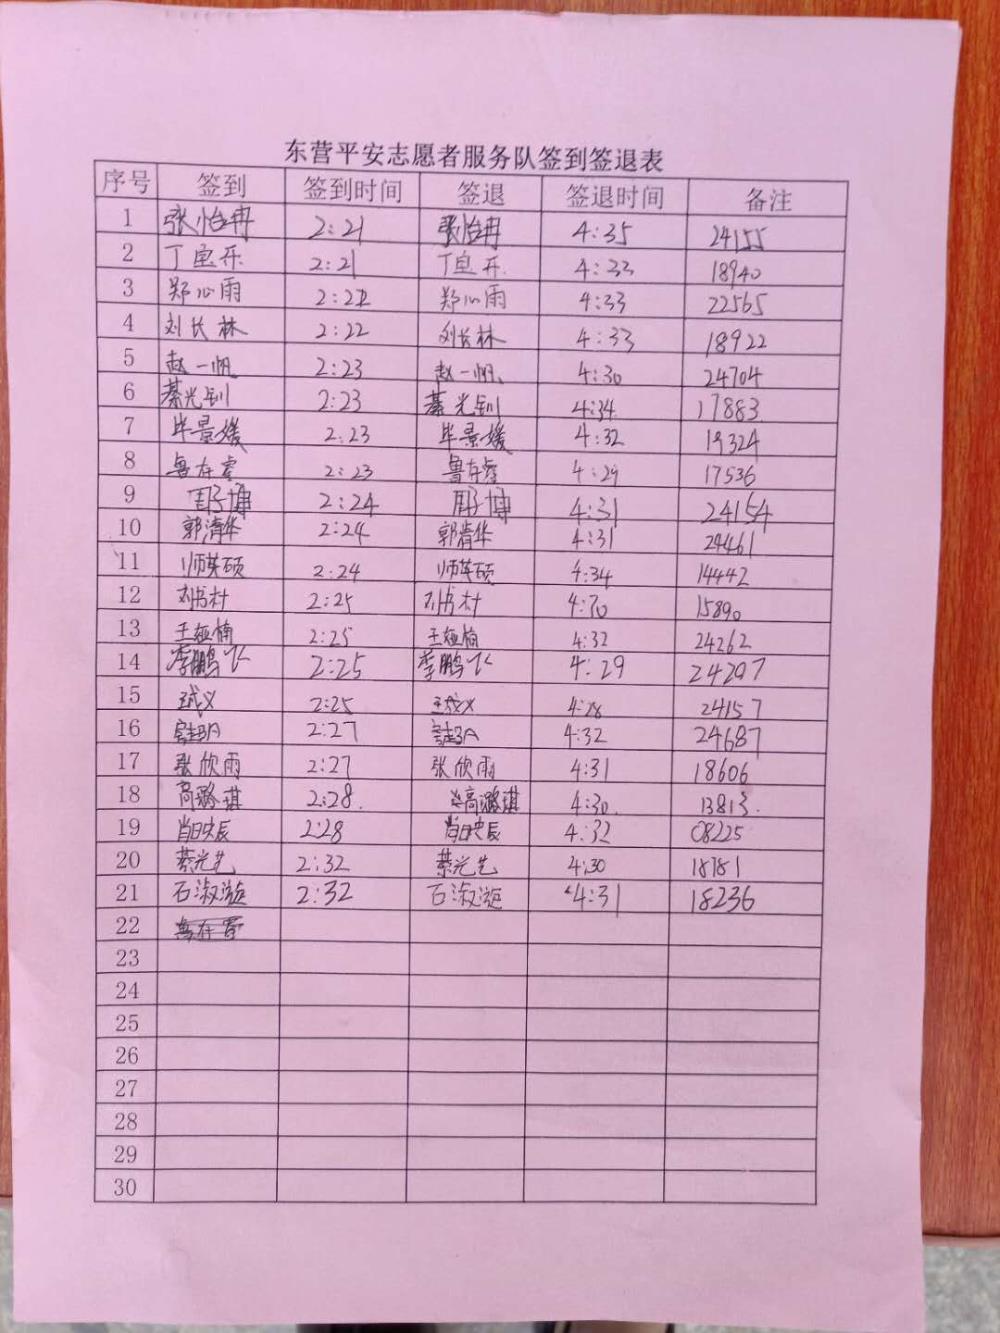 东营平安志愿者服务队签到签退表
序号 签到 签到时间 签退 签退时间 备注
1 张怡冉 2:21 张怡冉 4:35 24155
2 丁宜乐 2:21 丁宜乐 4:33 18940
3 郑心雨 2:22 郑心雨 4:33 22565
4 刘长林 2:22 刘长林 4:33 18922
5 赵一帆 2:23 赵一帆 4:30 24704
6 綦光钊 2:23 綦光钊 4:34 17883
7 毕景媛 2:23 毕景媛 4:32 19324
8 鲁在睿 2:23 鲁在睿 4:29 17536
9 周子博 2:24 周子博 4:31 24154
10 郭清华 2:24 郭清华 4:31 24461
11 师英硕 2:24 师英硕 4:34 14442
12 刘书村 2:25 刘书村 4:30 15890
13 王娅楠 2:25 王娅楠 4:32 24262
14 李鹏飞 2:25 李鹏飞 4:29 24207
15 2:25 4:28 24157
16 2:27 4:32 24687
17 张欣雨 2:27 张欣雨 4:31 18606
18 高璐琪 2:28. 高璐琪 4:30. 13813.
19 2:28 4:32 08225
20 綦光艺 2:32 綦光艺 4:30 18181
21 石淑漩 2:32 石淑漩 4:31 18236
22
23
24
25
26
27
28
29
30